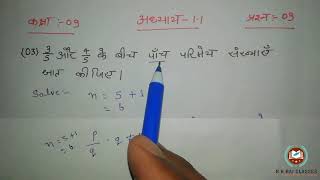 कक्षा :- 09 अध्याय :- 1.1 प्रश्न :- 09
(03) 3/5 और 4/5 के बीच पाँच परिमेय संख्याएँ
ज्ञात कीजिए।
Solve - n = 5 + 1
= 6
n = 5+1
= 6 p/q · q
R K RAJ CLASSES